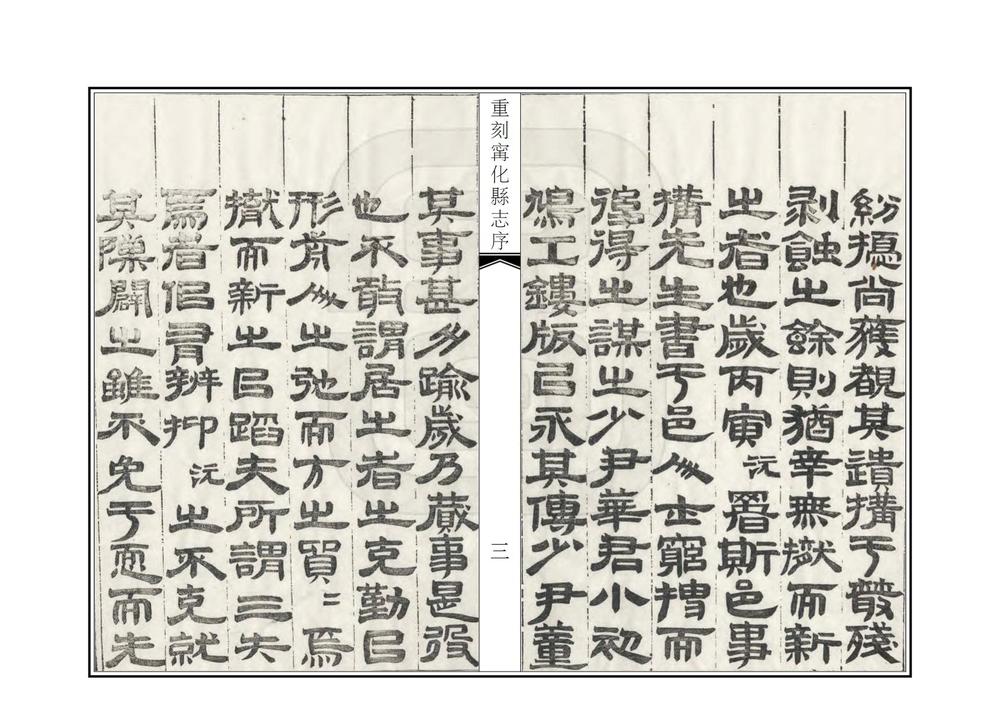 紛尚獲覩其遺搆于散殘
剥蝕之餘則猶幸無撤而新
之者也歲丙寅沅署斯邑事
搆先生書于邑人士窮搜而
僅得之謀之少尹華君小初
鳩工鏤版以永其傳少尹董
重刻甯化縣志序
三
其事甚力踰歲乃蕆事是役
也不敢謂居之者之克勤以
形前人之弛而方之貿二焉
撤而新之以蹈夫所謂三失
焉者有辨抑沅之不克就
其隙闢之雖不免于恧而先